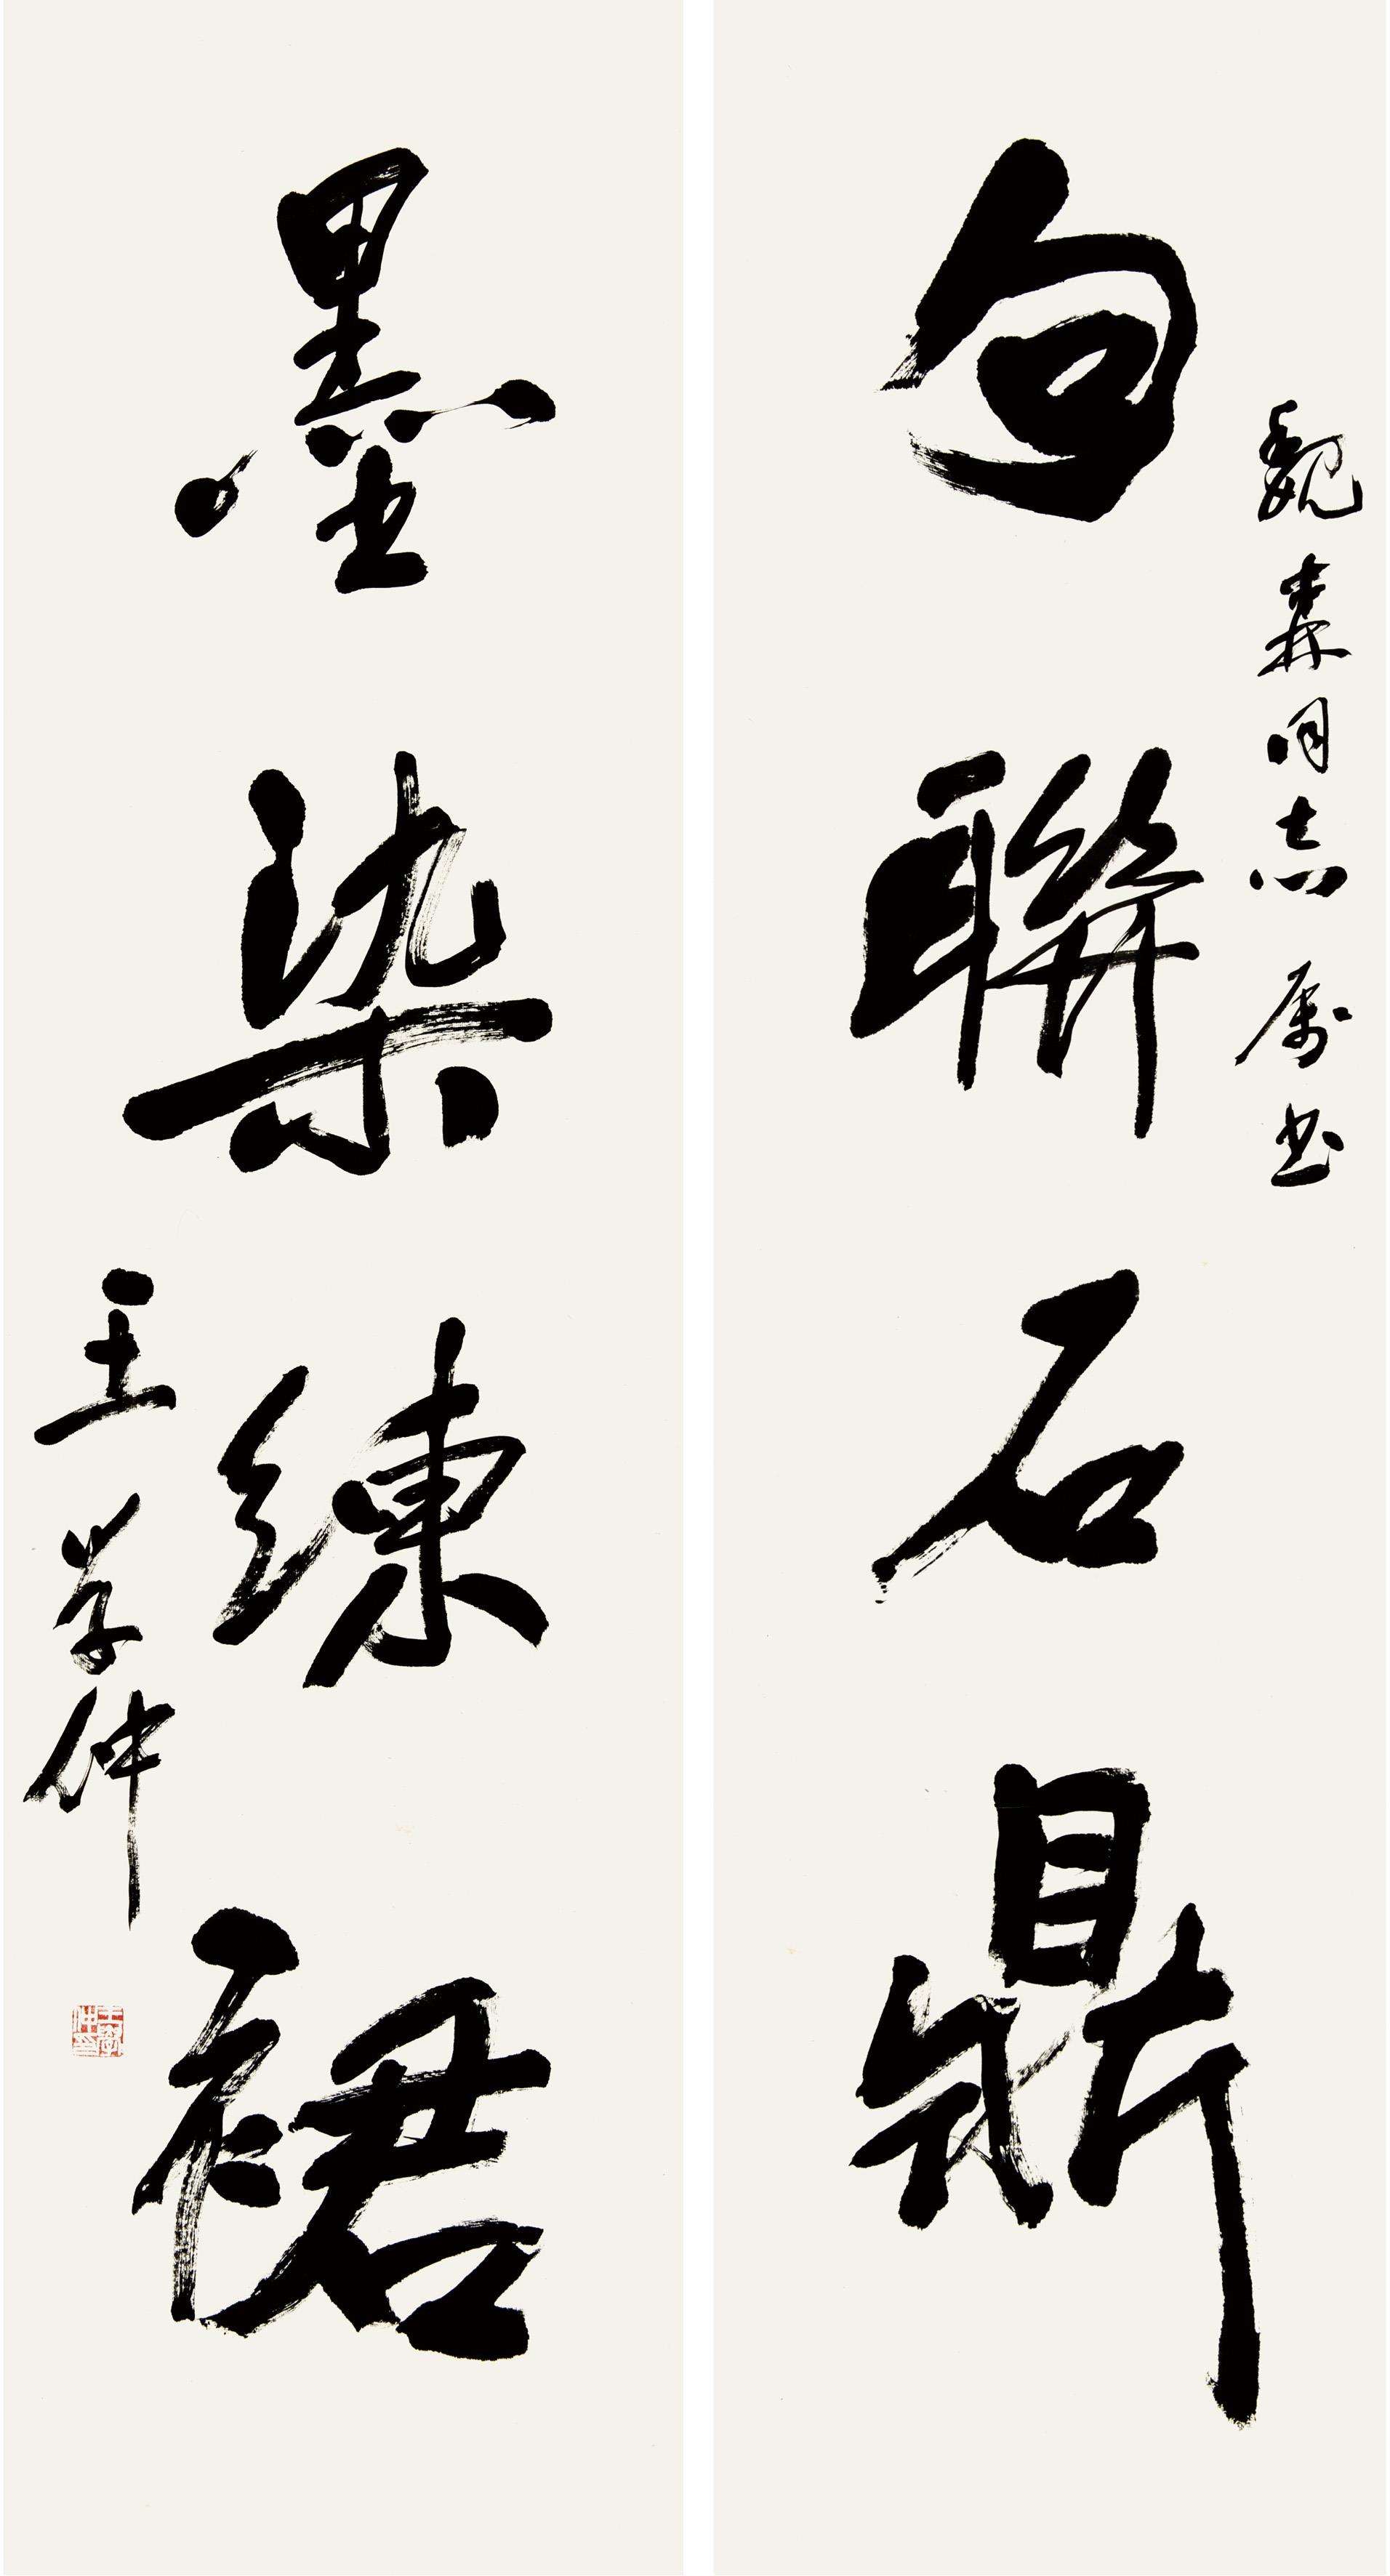 魏森同志属书
句聯石鼎
墨染練裙
王学仲
王學仲印